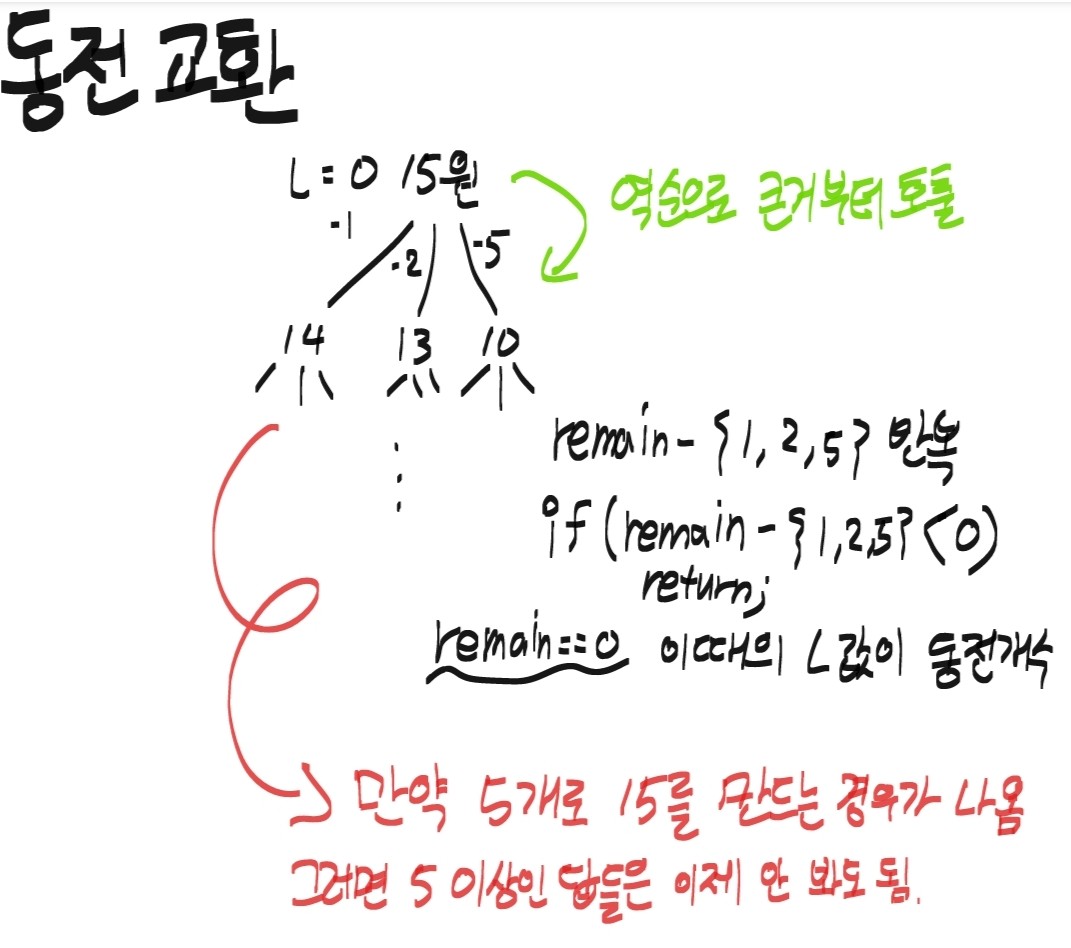 동전 교환
L = 0 15원
역순으로 큰거부터 호출
-1 -2 -5
14 13 10
remain - {1, 2, 5} 반복
if (remain - {1,2,5} < 0)
return;
remain == 0 이때의 L값이 동전개수
만약 5개로 15를 만드는 경우가 나옴
그러면 5 이상인 답들은 이제 안 봐도 됨.